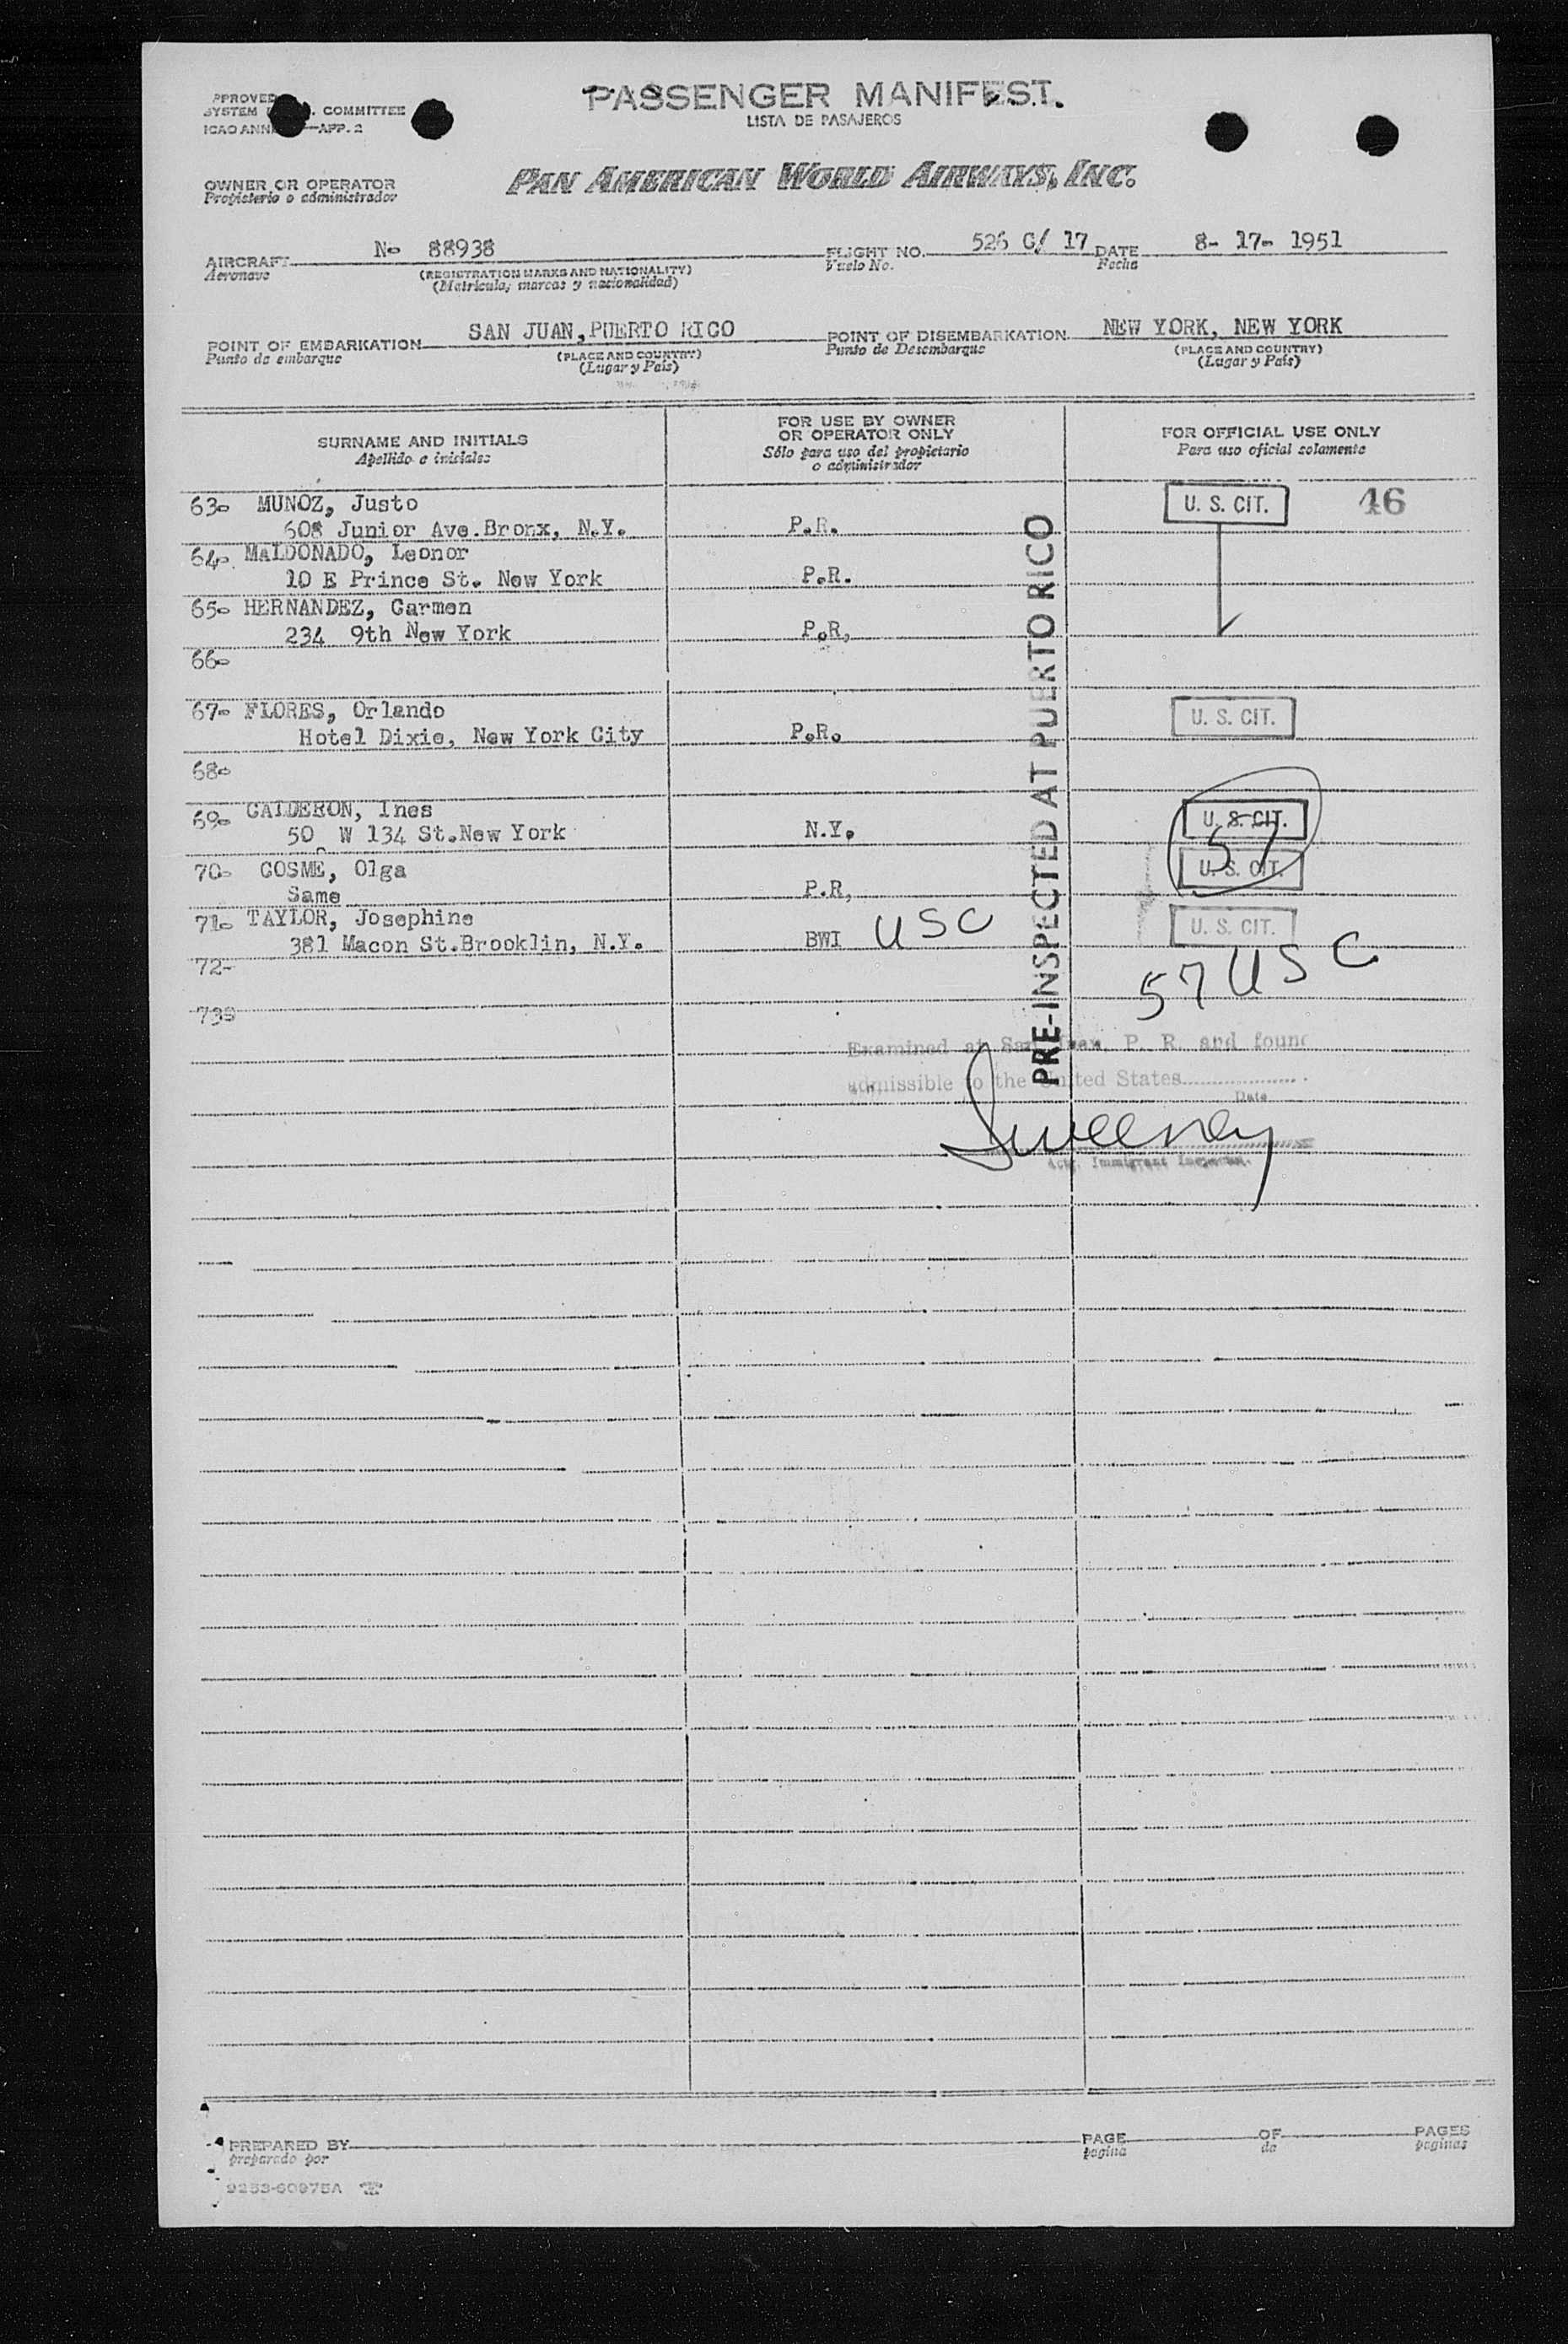 PASSENGER MANIFEST.
LISTA DE PASAJEROS
APPROVED
SYSTEM COMMITTEE
ICAO ANN —APP. 2
OWNER OR OPERATOR
Propieterio o administrador
PAN AMERICAN WORLD AIRWAYS, INC.
AIRCRAFT No 88938 FLIGHT NO. 526 C/ 17 DATE 8- 17- 1951
Aeronave (REGISTRATION MARKS AND NATIONALITY) Vuelo No. Fecha
(Matricula, marcas y nacionalidad)
POINT OF EMBARKATION SAN JUAN, PUERTO RICO POINT OF DISEMBARKATION NEW YORK, NEW YORK
Punto de embarque (PLACE AND COUNTRY) Punto de Desembarque (PLACE AND COUNTRY)
(Lugar y País) (Lugar y País)
SURNAME AND INITIALS
Apellido e iniciales
FOR USE BY OWNER
OR OPERATOR ONLY
Sólo para uso del propietario
o administrador
FOR OFFICIAL USE ONLY
Para uso oficial solamente
63- MUNOZ, Justo U. S. CIT. 46
608 Junior Ave.Bronx, N.Y. P.R.
64- MALDONADO, Leonor
10 E Prince St. New York P.R.
65- HERNANDEZ, Carmen
234 9th New York P.R,
66-
67- FLORES, Orlando U. S. CIT.
Hotel Dixie, New York City P.R.
68-
69- CALDERON, Ines U. S. CIT.
50 W 134 St.New York N.Y. 57
70- COSME, Olga U. S. CIT.
Same P.R,
71- TAYLOR, Josephine U. S. CIT.
381 Macon St.Brooklin, N.Y. BWI USC
72- 57 USC
73-
PRE-INSPECTED AT PUERTO RICO
Examined at San Juan, P. R. and found
admissible to the United States
Date
Sweeney
Actg. Immigrant Inspector.
PREPARED BY PAGE OF PAGES
preparado por pagina de paginas
9253-60975A